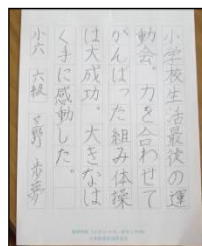 小学校生活最後の運
動会。力を合わせて
がんばった組み体操
は大成功。大きなは
く手に感動した。
小六 六槻
歩夢